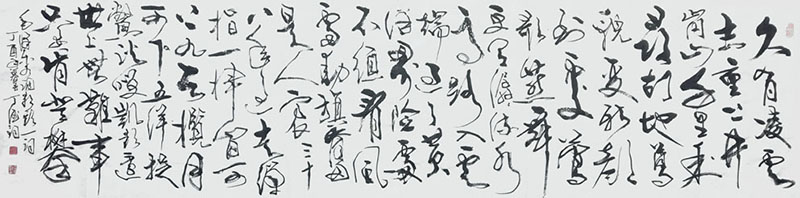 久有凌云
志重上井
岗山千里来
寻故地旧
貌变新颜
到处莺
歌燕舞
更有潺潺流水
高路入云
端过了黄
洋界险处
不须看风
雷动旌旗奋
是人寰三十
八年过去弹
指一挥间可
上九天揽月
可下五洋捉
鳖谈笑凯歌还
世上無難事
只要肯登攀
毛泽东水调歌头一词
丁酉